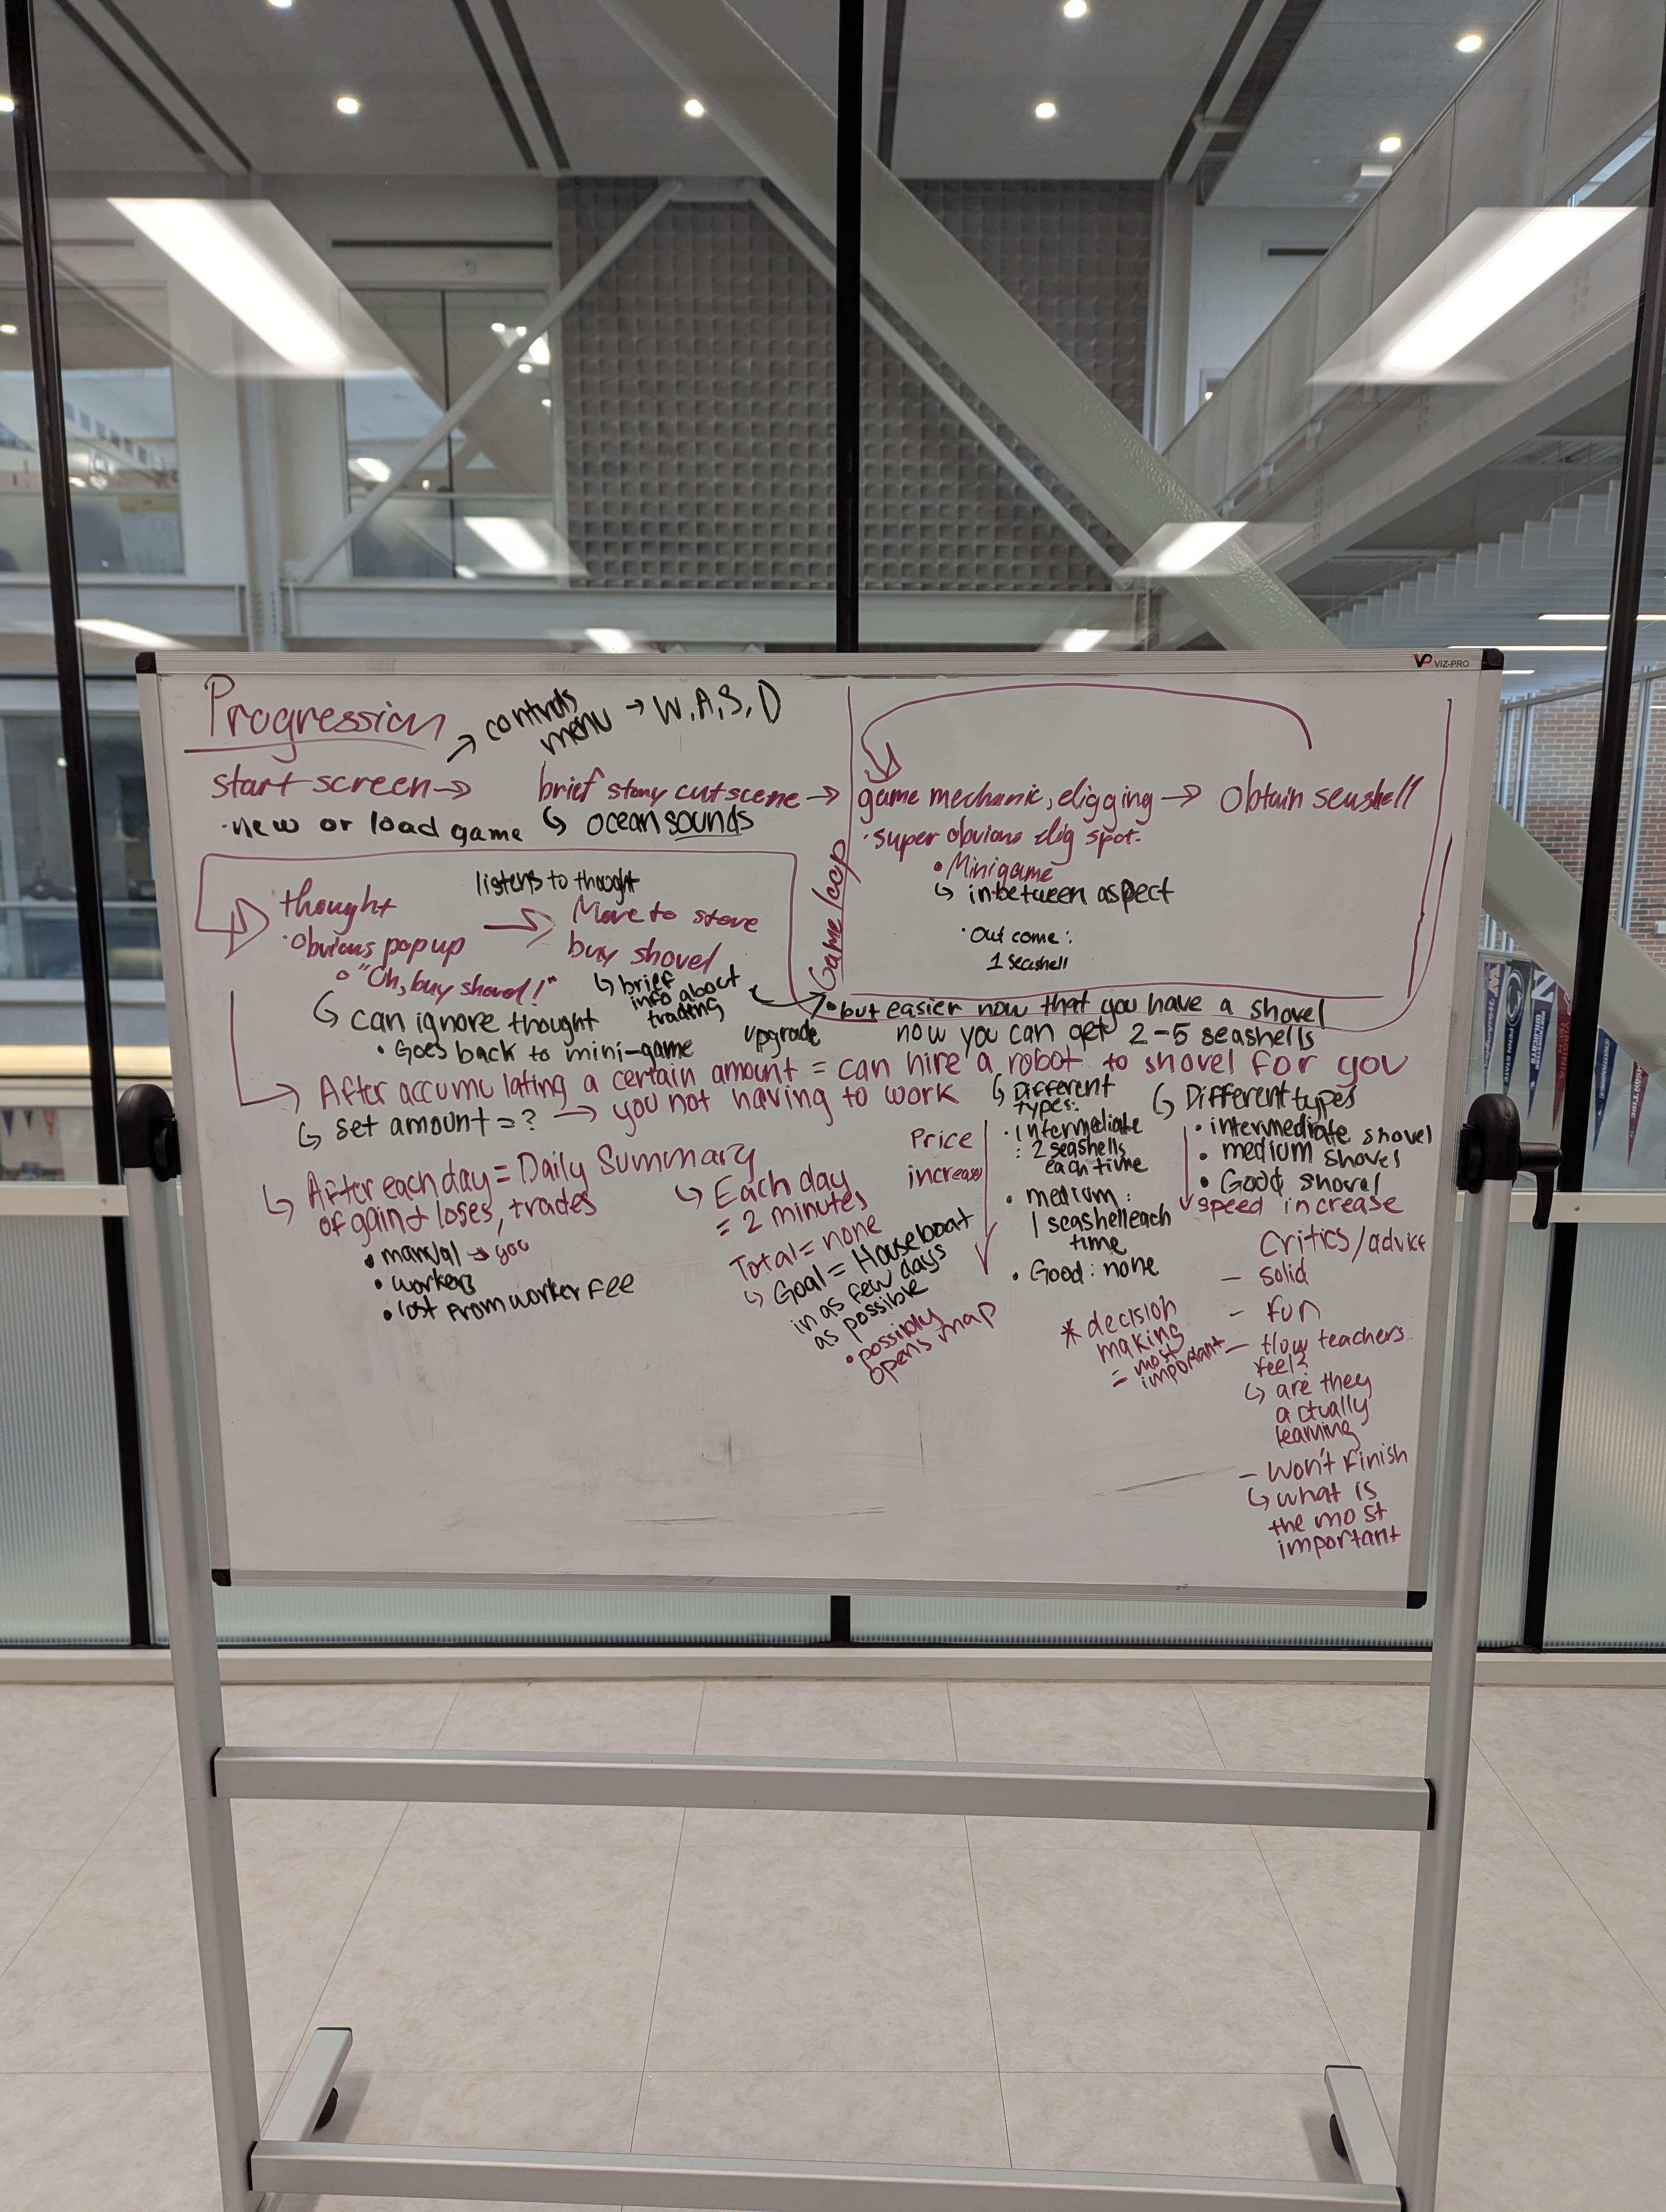 VIZ-PRO
Progression
→ controls
menu → W, A, S, D
start screen →
• new or load game
brief story cutscene →
↳ ocean sounds
Game loop
game mechanic, digging → obtain seashell
• super obvious dig spot.
• Minigame
↳ inbetween aspect
• Outcome:
1 seashell
thought
• Obvious pop up
• "Oh, buy shovel!"
↳ can ignore thought
• Goes back to mini-game
listens to thought
→ Move to store
buy shovel
↳ brief
info about
trading
• but easier now that you have a shovel
now you can get 2-5 seashells
upgrade
→ After accumulating a certain amount = can hire a robot to shovel for you
↳ set amount = ? → you not having to work
↳ After each day = Daily Summary
of gain & loses, trades
• manual → you
• workers
• lost from worker fee
↳ Each day
= 2 minutes
Total = none
↳ Goal = Houseboat
in as few days
as possible
• possibly
opens map
Price
increase
↳ Different
types:
• intermediate
: 2 seashells
each time
• medium:
1 seashell each
time
• Good: none
↳ Different types
• intermediate shovel
• medium shovel
• Good shovel
speed increase
* decision
making
= most
important
critics/advice
– solid
– fun
– How teachers
feel?
↳ are they
actually
learning
– won't finish
↳ what is
the most
important
PENN STATE
N
VIRGINIA TECH